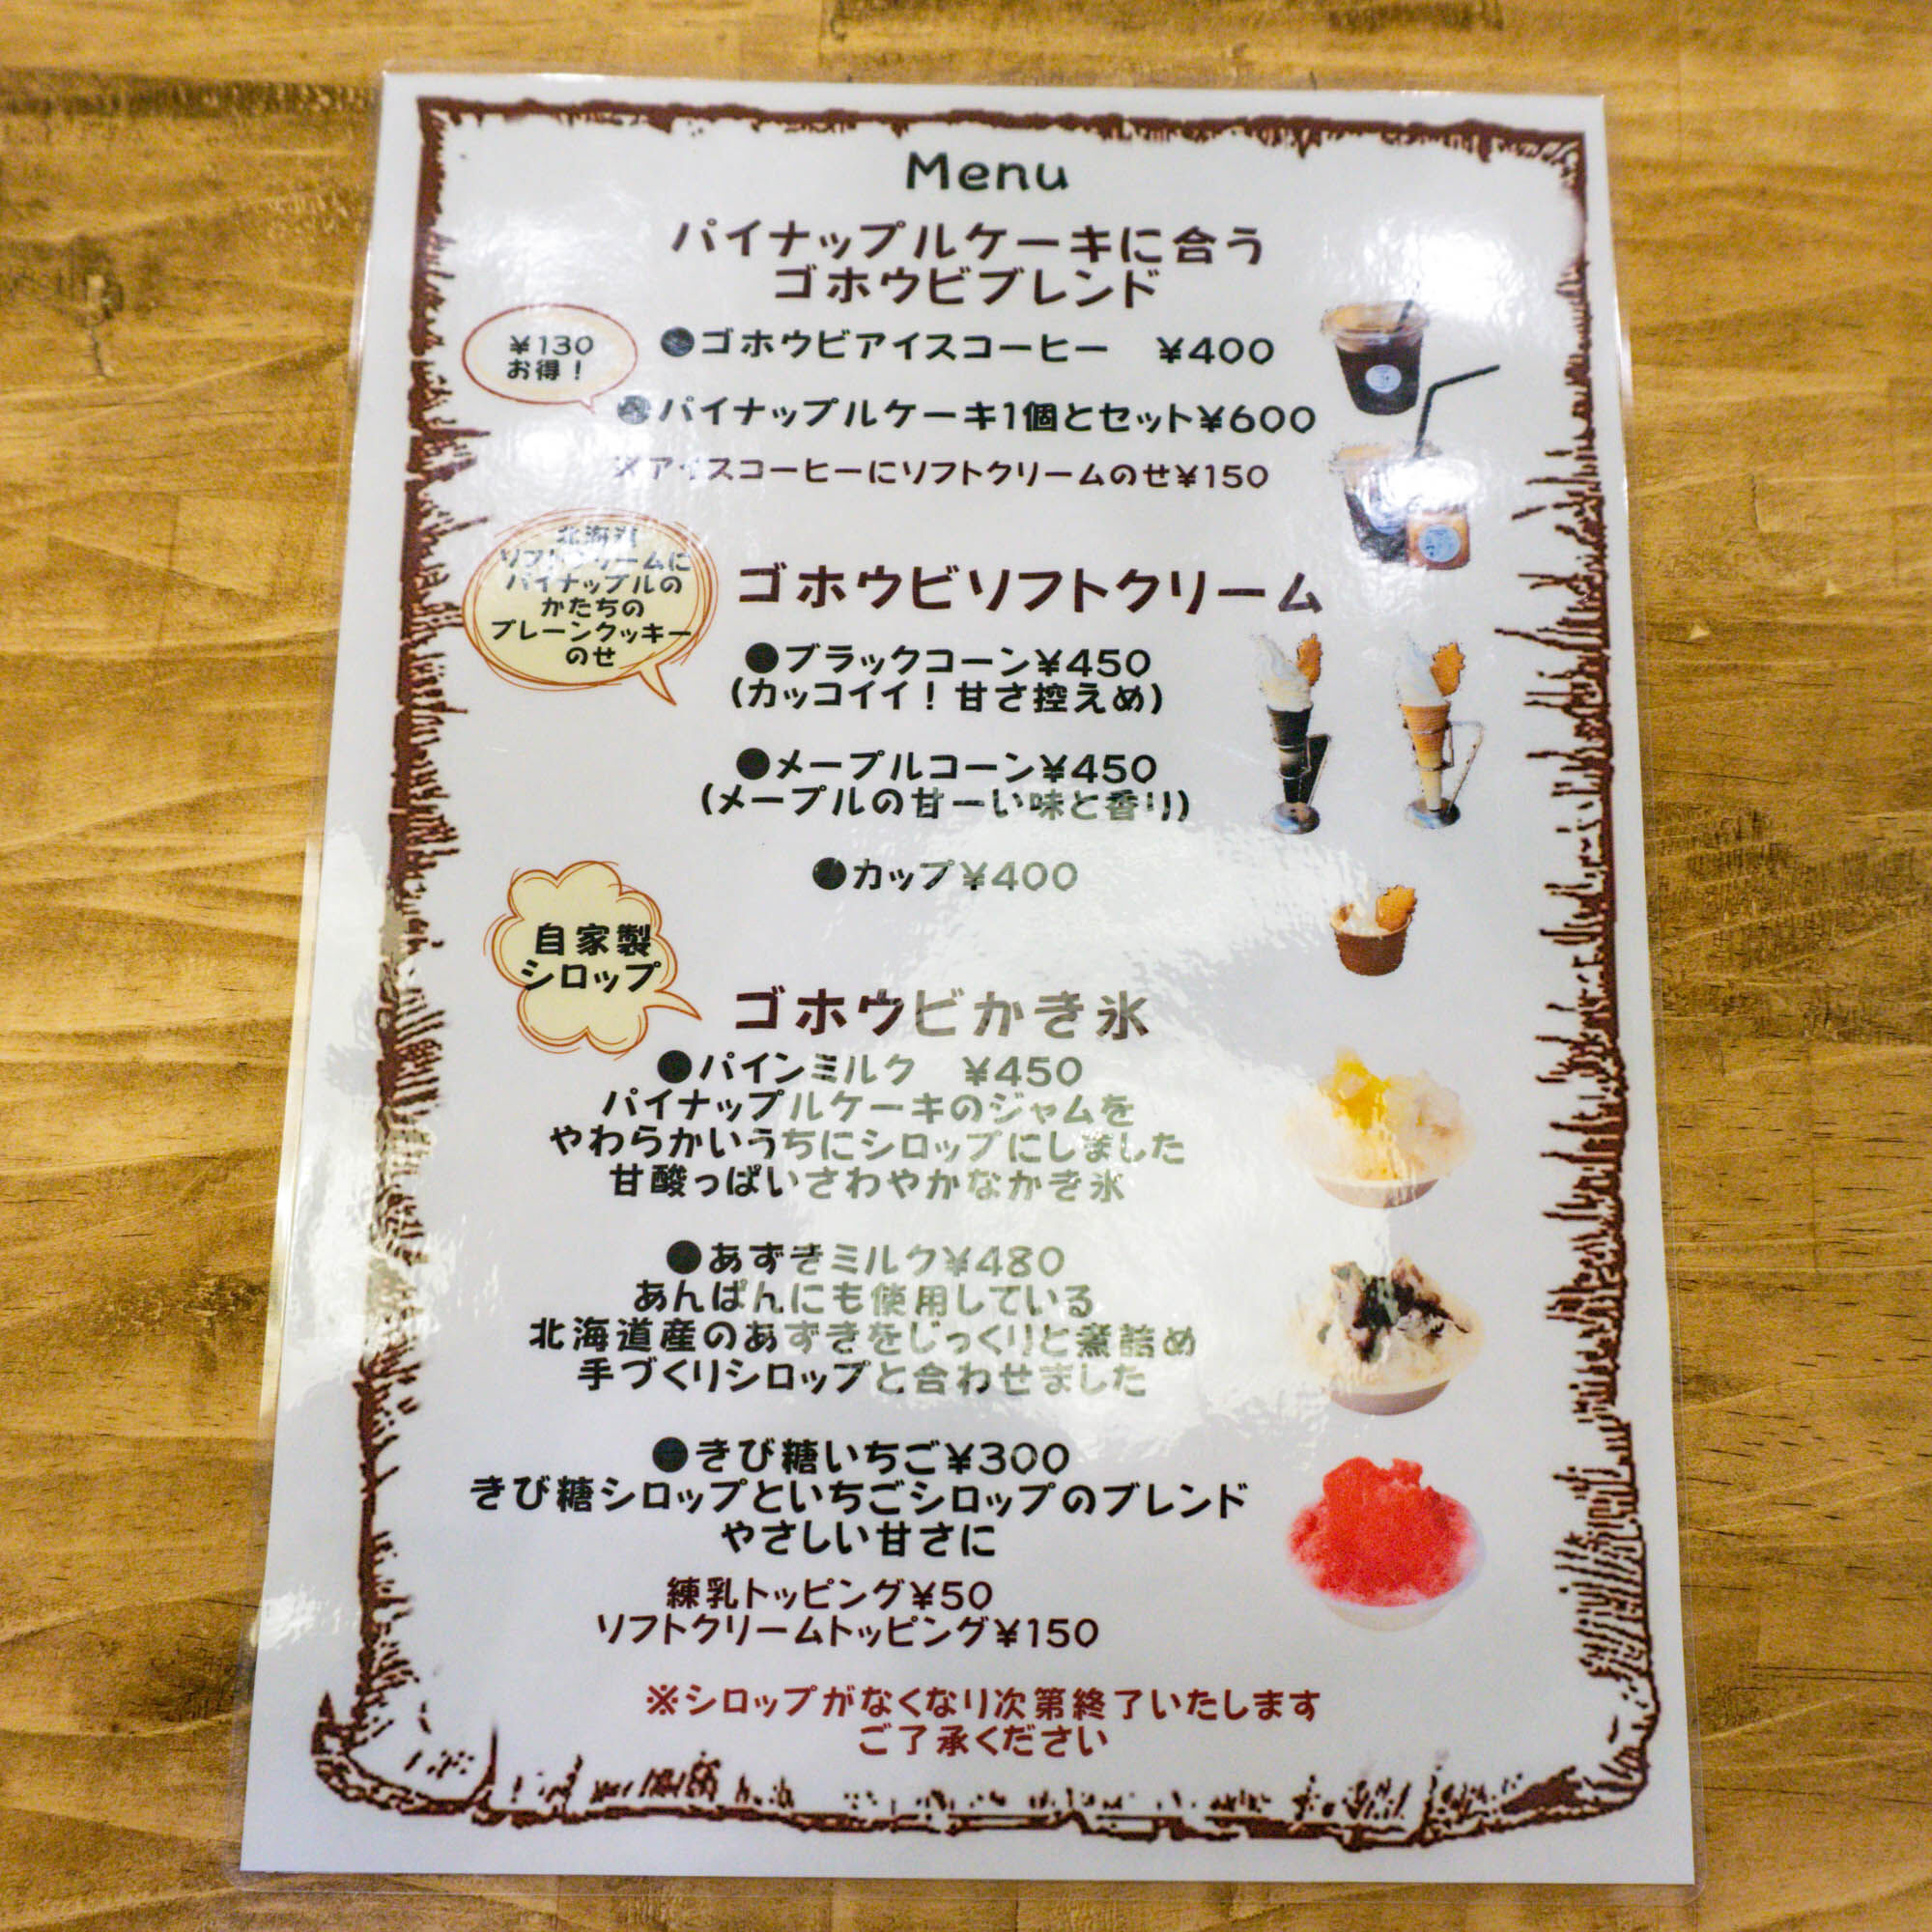 Menu
パイナップルケーキに合う
ゴホウビブレンド
¥130
お得！
●ゴホウビアイスコーヒー　¥400
●パイナップルケーキ1個とセット¥600
※アイスコーヒーにソフトクリームのせ¥150
北海道
ソフトクリームに
パイナップルの
かたちの
プレーンクッキー
のせ
ゴホウビソフトクリーム
●ブラックコーン¥450
(カッコイイ！甘さ控えめ)
●メープルコーン¥450
(メープルの甘ーい味と香り)
●カップ¥400
自家製
シロップ
ゴホウビかき氷
●パインミルク　¥450
パイナップルケーキのジャムを
やわらかいうちにシロップにしました
甘酸っぱいさわやかなかき氷
●あずきミルク¥480
あんぱんにも使用している
北海道産のあずきをじっくりと煮詰め
手づくりシロップと合わせました
●きび糖いちご¥300
きび糖シロップといちごシロップのブレンド
やさしい甘さに
練乳トッピング¥50
ソフトクリームトッピング¥150
※シロップがなくなり次第終了いたします
ご了承ください